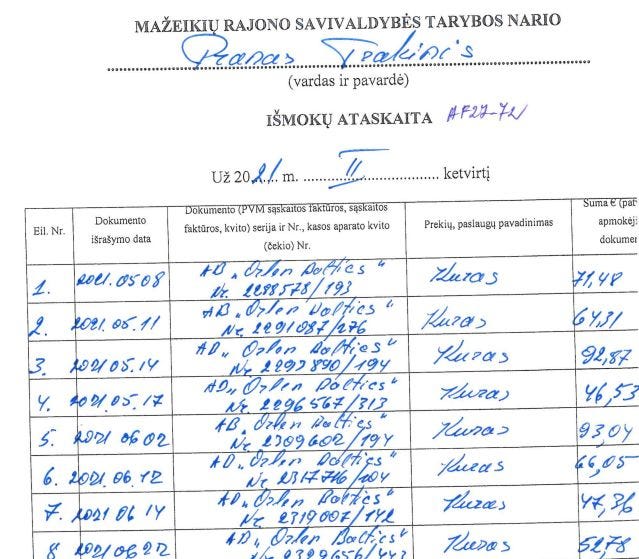 MAŽEIKIŲ RAJONO SAVIVALDYBĖS TARYBOS NARIO
Pranas
(vardas ir pavardė)
IŠMOKŲ ATASKAITA AF27-72
Už 2021 m. II ketvirtį
Eil. Nr. Dokumento išrašymo data Dokumento (PVM sąskaitos faktūros, sąskaitos faktūros, kvito) serija ir Nr., kasos aparato kvito (čekio) Nr. Prekių, paslaugų pavadinimas Suma € (pa apmokėji dokume
1. 2021.05.08 AB „Orlen Baltics" Kuras 71,48
Nr. 2288578/193
2. 2021.05.11 AB „Orlen Baltics" Kuras 64,31
Nr. 2291087/276
3. 2021.05.14 AB „Orlen Baltics" Kuras 92,87
Nr. 2292890/194
4. 2021.05.17 AB „Orlen Baltics" Kuras 46,53
Nr. 2296567/313
5. 2021.06.02 AB „Orlen Baltics" Kuras 93,04
Nr. 2309602/194
6. 2021.06.12 AB „Orlen Baltics" Kuras 66,05
Nr. 2317716/204
7. 2021.06.14 AB „Orlen Baltics" Kuras 47,36
Nr. 2319007/142
8 2021.06.22 AB „Orlen Baltics" Kuras 52,78
Nr. 2329656/443